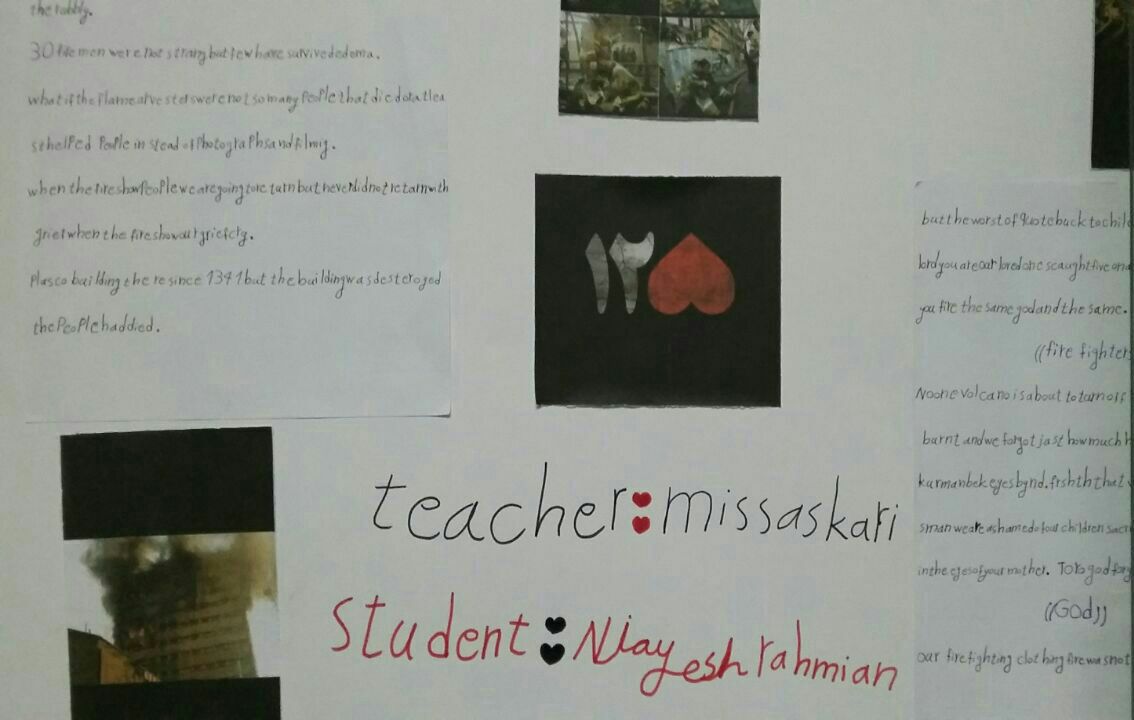 the rubbly.
30 fire men were not strang but few have survived edema.
what if the flame arvesters were not so many people that died or atlea
st helped people in stead of photographs and filmig.
when the fire show people we are going to re turn but never did not retarn with
grief when the fire show our grief cry.
Plasco building there since 1341 but the building was desteroyed
the people had died.
۱۲۵
teacher: miss askari
student: Niayesh rahmian
but the worst of quote buck to child
lord you are our loved one s caught five and
you fire the same god and the same.
((fire fighter
No one volcano is about to tarn off
burnt and we forgot just how much h
kurmanbek eyes that
sman we are ashamed of our children sacr
in the eyes of your mother. god forg
((God))
our fire fighting clothing fire was not